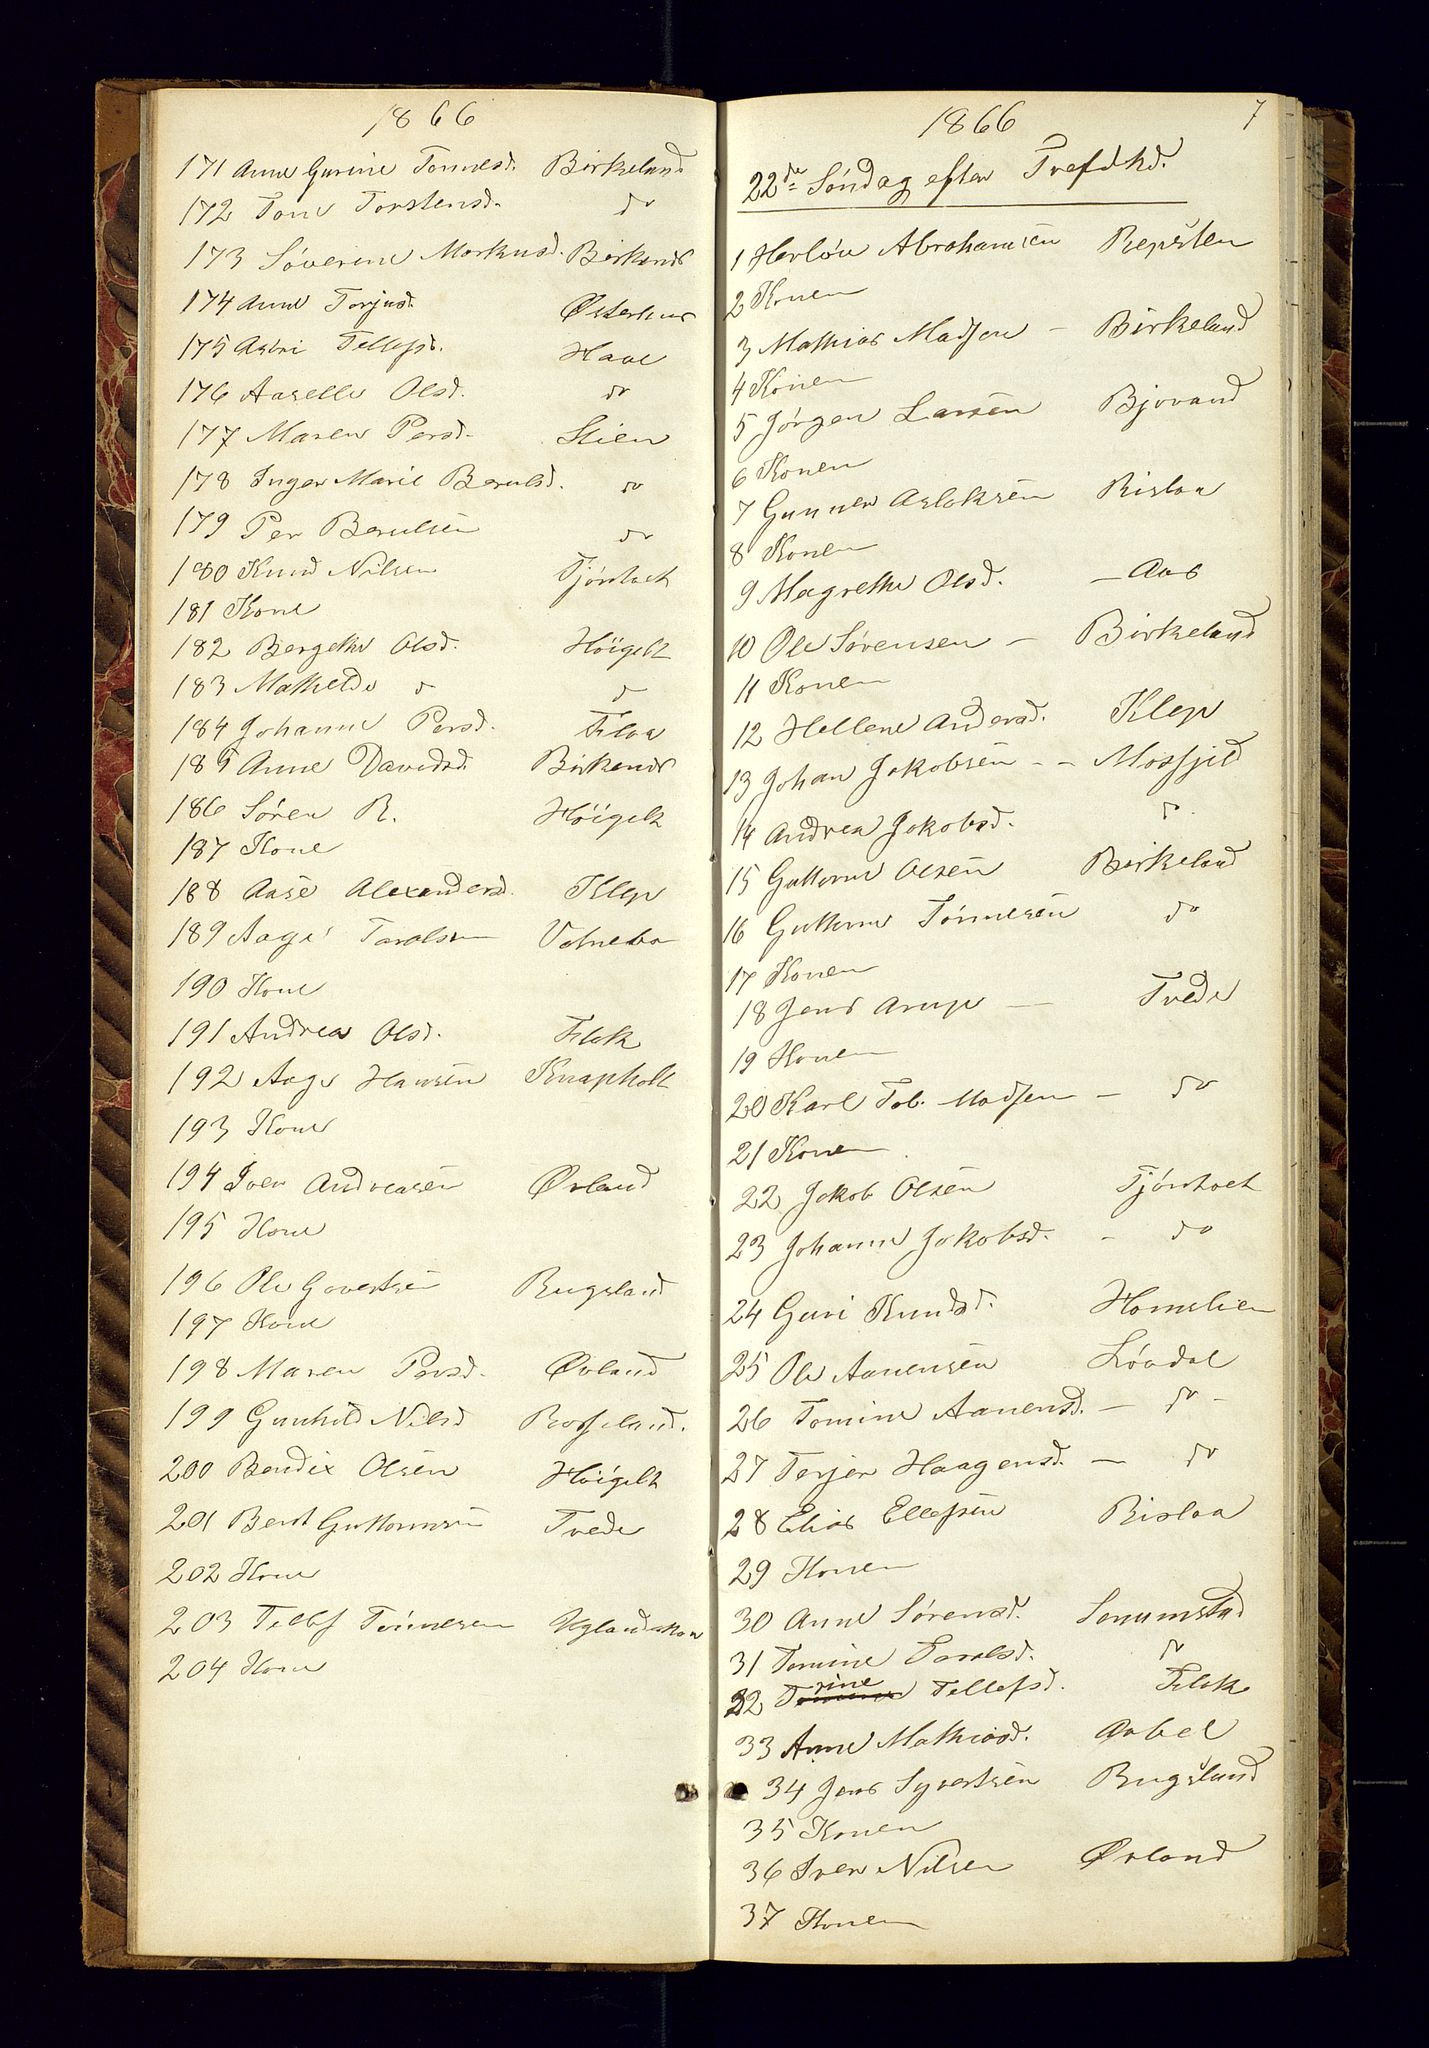 1866
171 Anne Gurine Tønnesd. Birkeland
172 Tone Torstensd. do
173 Søverine Markusd. Birkenes
174 Anne Torjusd. Østerhus
175 Astri Tellefsd. Haae
176 Aaselle Olsd. do
177 Maren Persd. Stien
178 Inger Marie Berulsd. do
179 Per Berulsen do
180 Knud Nilsen Tjønhoet
181 Kone
182 Bergethe Olsd. Höigelt
183 Mathelde d d
184 Johanne Persd. Flaa
185 Anne Davidsd. Birkenes
186 Søren R. Höigelt
187 Kone
188 Aase Alexandersd. Klep
189 Aage Taralsen Vatnebo
190 Kone
191 Andrea Olsd. Flak
192 Aage Hansen Knapholt
193 Kone
194 Iver Andreasen Øvland
195 Kone
196 Ole Govertsen Rugsland
197 Kone
198 Maren Persd. Øvland
199 Gunhild Nilsd Rosseland.
200 Bendix Olsen Höigelt
201 Bent Guttormsen Tvede
202 Kone
203 Tellef Tönnesen Uglandskar
204 Kone
1866 7
22de Søndag efter Trefdhd.
1 Herlöv Abrahamsen Repsten
2 Konen
3 Mathias Madsen – Birkeland
4 Konen
5 Jørgen Larsen Bjorvand
6 Konen
7 Gunner Aslaksen Rislaa
8 Konen
9 Magrethe Olsd. – Aas
10 Ole Sørensen – Birkeland
11 Konen
12 Hellene Andersd. Klep
13 Johan Jakobsen – – Mosfjeld
14 Andrea Jakobsd. d
15 Guttorm Olsen Birkeland
16 Guttorm Tønnesen do
17 Konen
18 Jens Arup – Tvede
19 Konen
20 Karl Tob. Madsen – do
21 Konen
22 Jakob Olsen Tjønhoet
23 Johanne Jakobsd. – do
24 Guri Knudsd. Homelien
25 Ole Aanensen Løvdal
26 Tomine Aanensd. – do –
27 Terjer Haagensd. – do
28 Elias Ellefsen Rislaa
29 Konen
30 Anne Sørensd. Senumstad
31 Tomine Taralsd. do
rine
32 T Tellefsd. Flak
33 Anne Mathiasd. Øvbel
34 Jens Syvertsen Rugsland
35 Konen
36 Iver Nilsen Øvland
37 Konen